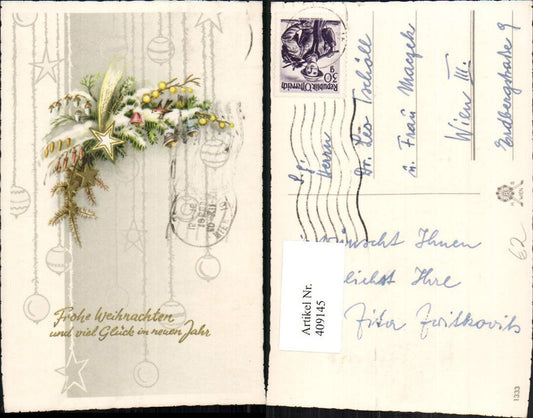 Frohe Weihnachten
und viel Glück im neuen Jahr
30
g
Republik Österreich
S. g.
Herrn
Dr. Leo Tschöll
u. Frau Maczek
Wien III.
Erdbergstraße 9
wünscht Ihnen
Ihre
Zita
62
Artikel Nr.
409145
1333